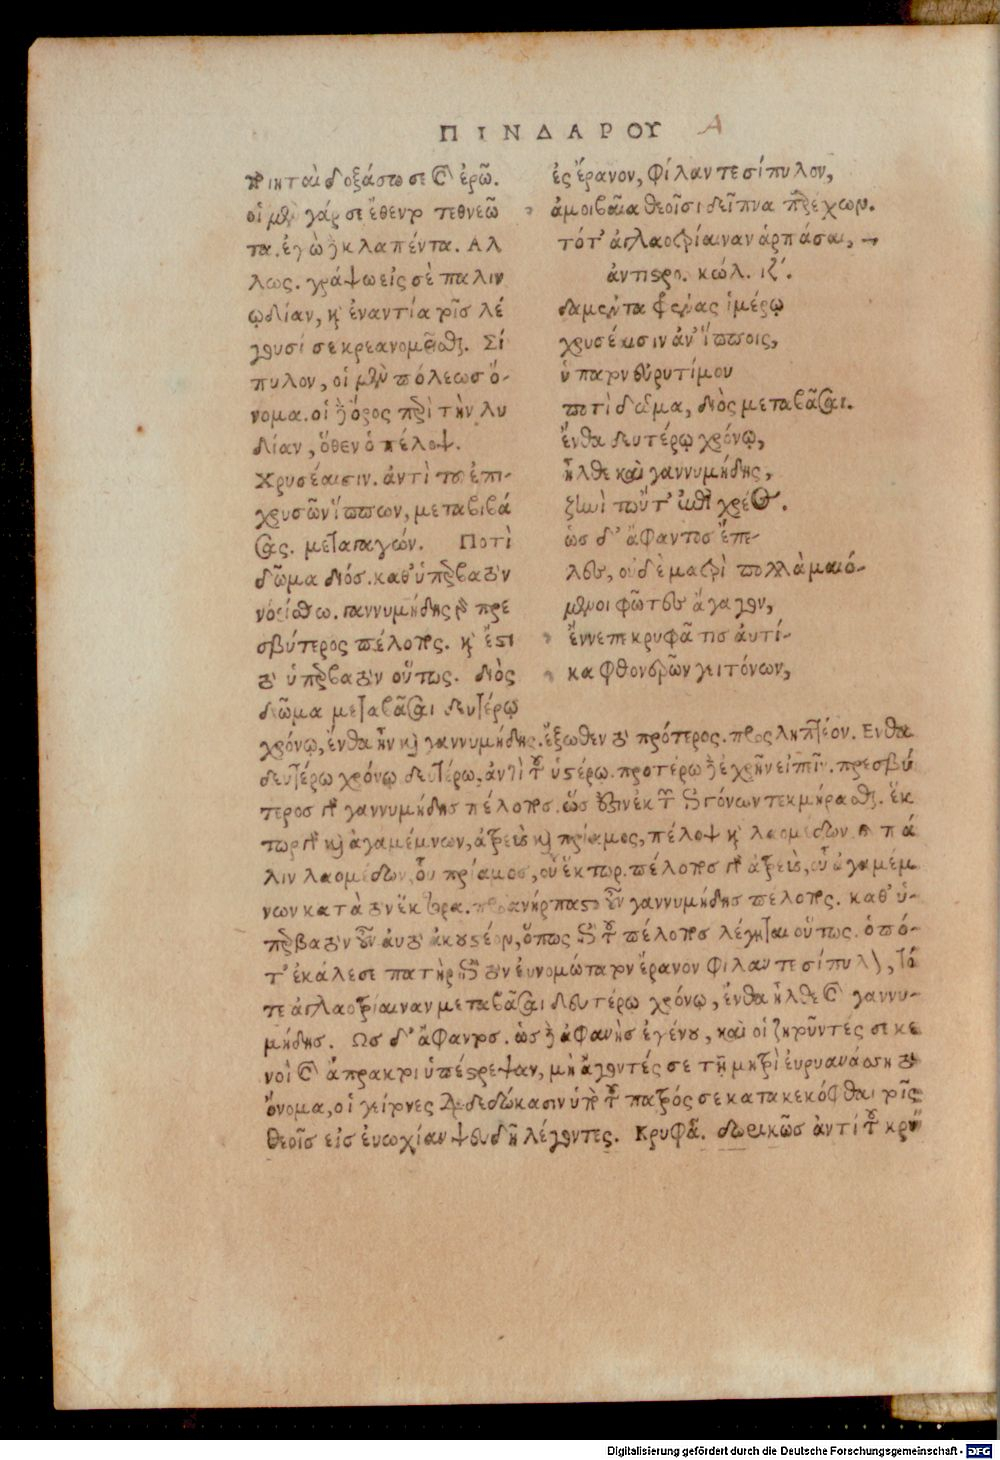 ΠΙΝΔΑΡΟΥ Α
οἱ μὲν γάρ σε ἔθεντο τεθνεῶ
τα. ἐγὼ δὲ κλαπέντα. Αλ
λως. γράψω εἰς σὲ παλιν
ῳδίαν, καὶ ἐναντία τοῖς λέ
γουσί σε κρεανομεῖσθαι. Σί
πυλον, οἱ μὲν πόλεως ὄ-
νομα. οἱ δὲ ὄρος περὶ τὴν λυ
δίαν, ὅθεν ὁ πέλοψ.
Χρυσέαισιν. ἀντὶ τοῦ ἐπι-
χρυσῶν ἵππων, μεταβιβά
σας. μεταγαγών. Ποτὶ
δῶμα διός. καθ' ὑπερβατὸν
νοείσθω. γαννυμήδης δὲ πρε
σβύτερος πέλοπος. καὶ ἔστι
τὸ ὑπερβατὸν οὕτως. διὸς
δῶμα μεταβᾶσαι δευτέρῳ
ἐς ἔρανον, φίλαν τε σίπυλον,
ἀμοιβαῖα θεοῖσι δεῖπνα παρέχων.
τότ' ἀγλαοτρίαιναν ἁρπάσαι,
ἀντιστρο. κώλ. ιζ'.
δαμέντα φρένας ἱμέρῳ
χρυσέαισιν ἀν' ἵπποις,
ὑπατον εὐρυτίμου
ποτὶ δῶμα, διὸς μεταβᾶσαι.
ἔνθα δευτέρῳ χρόνῳ,
ἦλθε καὶ γαννυμήδης,
ζηνὶ τωΰτ' ἐπὶ χρέος.
ὡς δ' ἄφαντος ἔπε-
λευ, οὐδὲ ματρὶ πολλὰ μαιό-
μενοι φῶτες ἄγαγον,
ἔννεπε κρυφᾶ τις αὐτί-
κα φθονερῶν γειτόνων,
χρόνῳ, ἔνθα ἦν καὶ γαννυμήδης. ἔξωθεν τὸ πρότερος. προσληπτέον. Ενθα
δευτέρω χρόνῳ δευτέρω, ἀντὶ τοῦ ὑστέρω. προτέρω δὲ ἐχρῆν εἰπεῖν. πρεσβύ
τερος γὰρ γαννυμήδης πέλοπος. ὥς ἐστιν ἐκ τῶν ἀπογόνων τεκμήρασθαι. ἕκ
τωρ γὰρ καὶ ἀγαμέμνων, ἀτρεὺς καὶ πρίαμος, πέλοψ καὶ λαομέδων. πά
λιν λαομέδων, οὗ πρίαμος, οὗ ἕκτωρ. πέλοπος γὰρ ἀτρεὺς, οὗ ἀγαμέμ
νων κατὰ τὸν ἕκτορα. προανήρπαστο οὖν γαννυμήδης πέλοπος. καθ' ὑ-
περβατὸν οὖν αὐτὸ ἀκουστέον, ὅπως ἐπὶ τοῦ πέλοπος λέγηται οὕτως. ὁπό-
τ' ἐκάλεσε πατὴρ ἐπὶ τὸν εὐνομώτατον ἔρανον φίλαν τε σίπυλον, τό
τε ἀγλαοτρίαιναν μεταβᾶσαι δευτέρω χρόνῳ, ἔνθα ἦλθε καὶ γαννυ-
μήδης. Ως δ' ἄφαντος. ὡς δὲ ἀφανὴς ἐγένου, καὶ οἱ ζητοῦντές σε κε
νοὶ καὶ ἄπρακτοι ὑπέστρεψαν, μὴ ἄγοντές σε τῇ μητρὶ εὐρυανάσσῃ τὸ
ὄνομα, οἱ γείτονες διαδεδώκασιν ὑπὸ τοῦ πατρός σε κατακεκόφθαι τοῖς
θεοῖς εἰς εὐωχίαν ψευδῆ λέγοντες. Κρυφᾶ. δωρικῶς ἀντὶ τοῦ κρύ
Digitalisierung gefördert durch die Deutsche Forschungsgemeinschaft - DFG